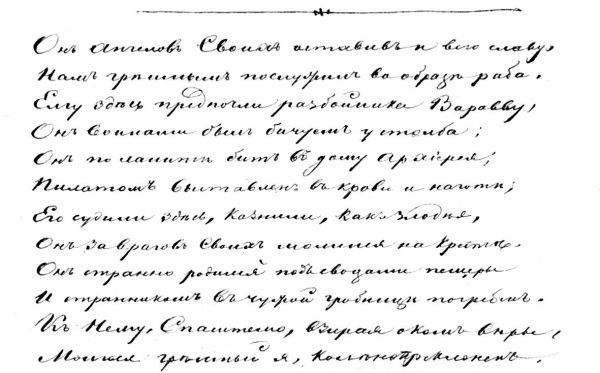 Онъ Ангеловъ Своихъ оставивъ и всю славу,
Намъ грѣшнымъ послужилъ во образѣ раба.
Ему здѣсь предпочли разбойника Варавву,
Онъ воинами былъ бичуемъ у столба;
Онъ по ланитѣ битъ въ дому Архіерея,
Пилатомъ выставленъ въ крови и наготѣ;
Его судили здѣсь, казнили, какъ злодѣя,
Онъ за враговъ Своихъ молился на крестѣ.
Онъ странно родился подъ сводами пещеры
И странникомъ въ чужой гробницѣ погребенъ.
Къ Нему, Спасителю, взирая окомъ вѣры,
Молюся грѣшный я, колѣнопреклоненъ.